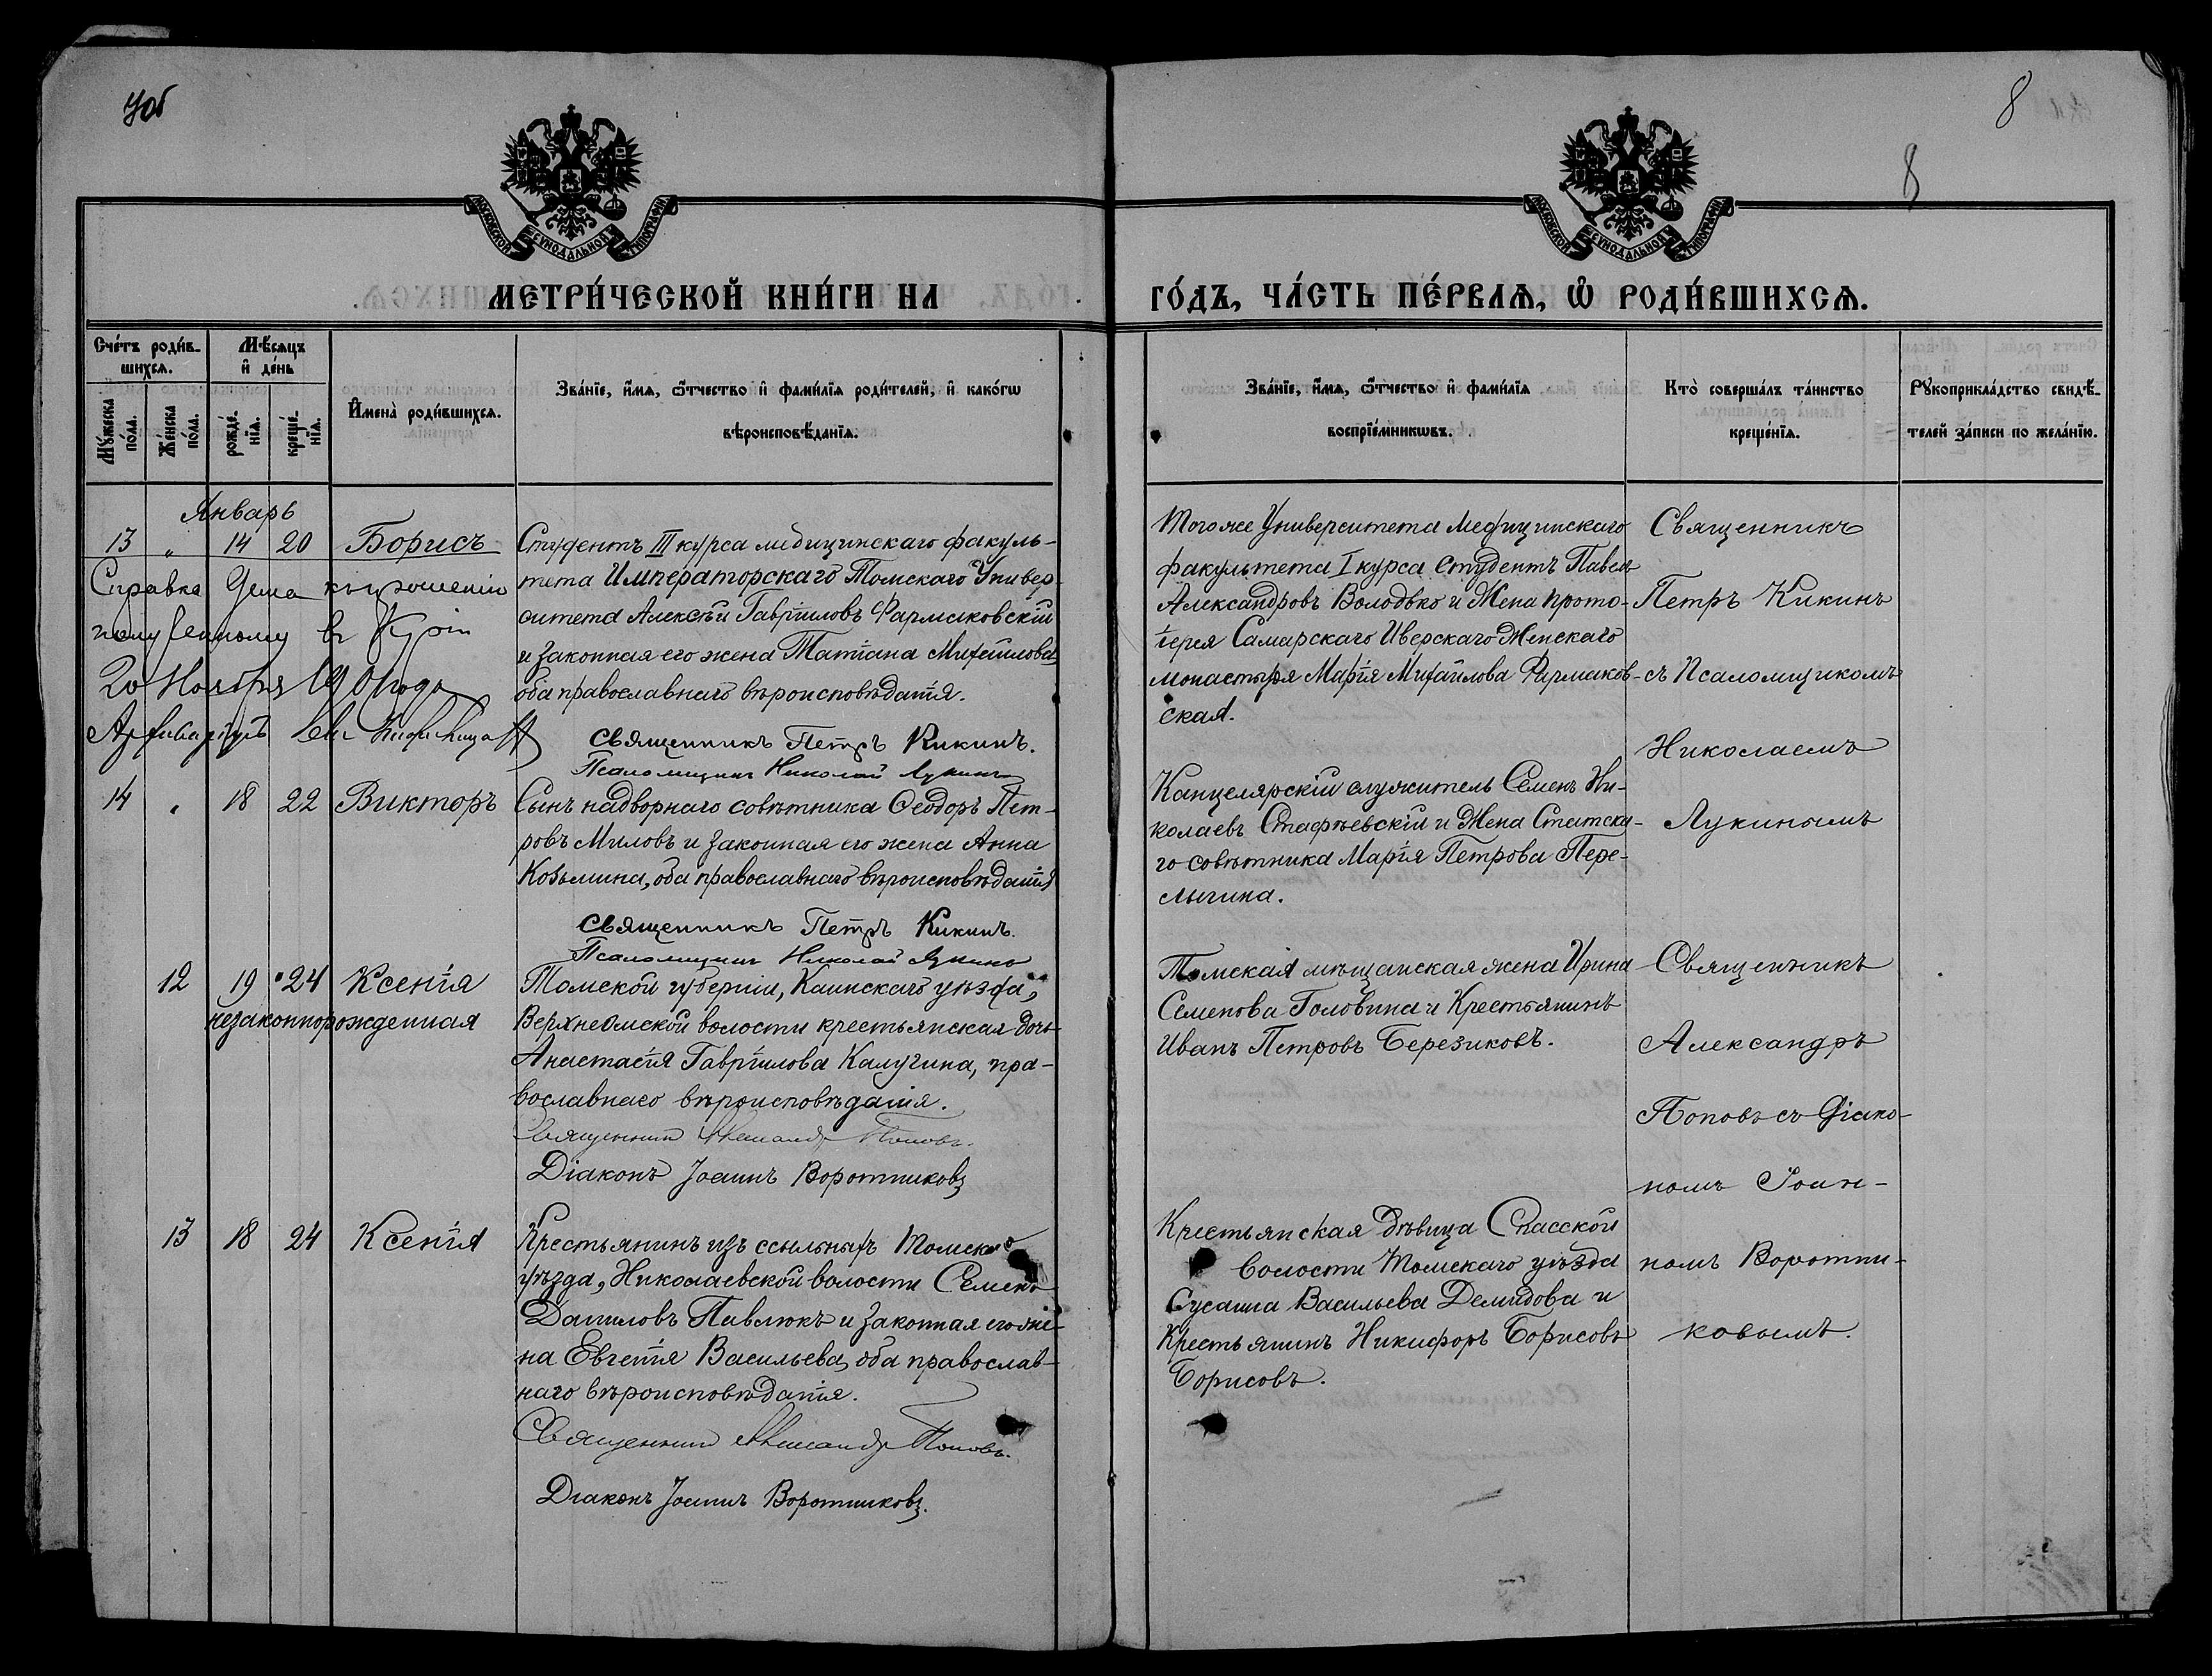 7об
8
8
МОСКОВСКОЙ СѴНОДАЛЬНОЙ ТИПОГРАФІИ
МОСКОВСКОЙ СѴНОДАЛЬНОЙ ТИПОГРАФІИ
МЕТРИ́ЧЕСКОЙ КНИ́ГИ НА
ГО́ДЪ, ЧА́СТЬ ПЕ́РВАѦ, Ѡ҆ РОДИ́ВШИХСѦ.
Сче́тъ роди́в-
шихсѧ.
Мѣ́сяцъ
и҆ де́нь
Мꙋ́жеска
по́ла.
Же́нска
по́ла.
рожде́-
нїѧ.
креще́-
нїѧ.
И҆мена̀ роди́вшихсѧ.
Зва́нїе, и҆́мѧ, ѻ҆́тчество и҆ фами́лїѧ роди́телей, и҆ како́гѡ
вѣроисповѣ́данїѧ.
Зва́нїе, и҆́мѧ, ѻ҆́тчество и҆ фами́лїѧ
воспрїе́мникѡвъ.
Кто̀ соверша́лъ та́инство
креще́нїѧ.
Рꙋкоприкла́дство свидѣ́-
телей за́писи по жела́нїю.
Январь
13 " 14 20 Борисъ
Студентъ III курса медицинскаго факуль-
тета Императорскаго Томскаго Универ-
ситета Алексѣй Гавріиловъ Фармаковскій
и законная его жена Татіана Михайлова
оба православнаго вѣроисповѣданія.
Священникъ Петръ Кикинъ.
Псаломщикъ Николай Лукинъ
Справка дана къ прошенію
полученному въ
20 Ноября 1901 года
Архиваріусъ
Тогоже Университета Медицинскаго
факультета I курса студентъ Павелъ
Александровъ Володько и Жена прото-
іерея Самарскаго Иверскаго Женскаго
монастыря Марія Михайлова Фармаков-
ская.
Священникъ
Петръ Кикинъ
съ Псаломщикомъ
Николаемъ
Лукинымъ
14 " 18 22 Викторъ
Сынъ надворнаго совѣтника Ѳеодоръ Пет-
ровъ Миловъ и законная его жена Анна
Козьмина, оба православнаго вѣроисповѣданія
Священникъ Петръ Кикинъ.
Псаломщикъ Николай Лукинъ
Канцелярскій служитель Семенъ Ни-
колаевъ Стафѣевскій и Жена Статска-
го совѣтника Марія Петрова Пере-
лыгина.
12 19 24 Ксенія
незаконнорожденная
Томской губерніи, Каинскаго уѣзда,
Верхнеомской волости крестьянская дочь
Анастасія Гавріилова Калугина, пра-
вославнаго вѣроисповѣданія.
Священникъ Александръ Поповъ.
Діаконъ Іоаннъ Воротниковъ
Томская мѣщанская жена Ирина
Семенова Головина и Крестьянинъ
Иванъ Петровъ Березиковъ.
Священникъ
Александръ
Поповъ съ Діако-
номъ Іоан-
номъ Воротни-
ковымъ.
13 18 24 Ксенія
Крестьянинъ изъ ссыльныхъ Томскаго
уѣзда, Николаевской волости Семенъ
Даниловъ Павлюкъ и законная его же-
на Евгенія Васильева, оба православ-
наго вѣроисповѣданія.
Священникъ Александръ Поповъ.
Діаконъ Іоаннъ Воротниковъ.
Крестьянская дѣвица Спасской
волости Томскаго уѣзда
Сусанна Васильева Демидова и
Крестьянинъ Никифоръ Борисовъ
Борисовъ.